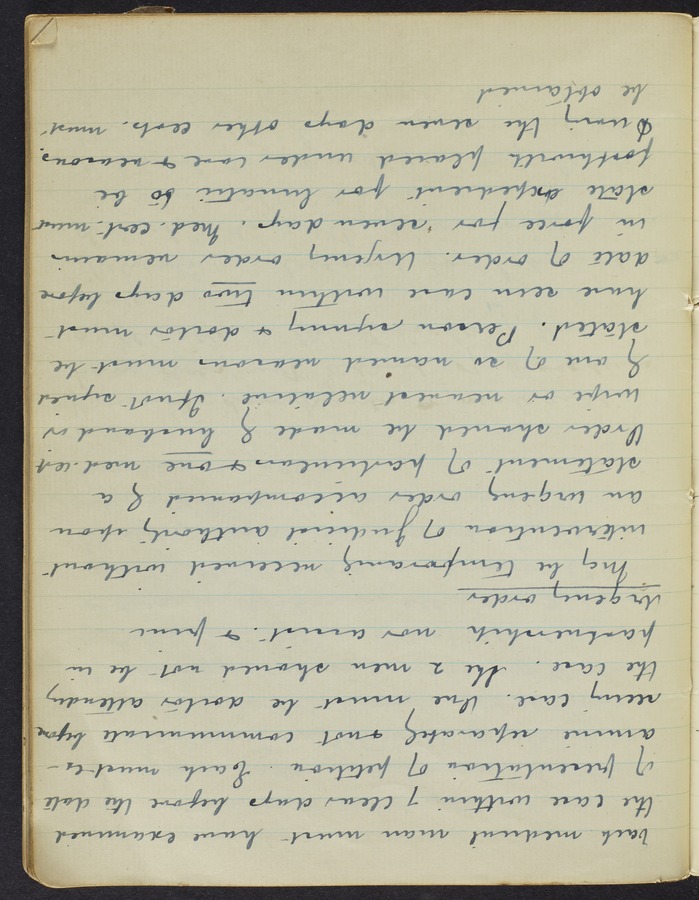 Each medical man must have examined
the case within 7 clear days before the date
of presentation of petition. Each must ex-
amine separately & not communicate before
seeing case. One must be doctor attending
the case. The 2 men should not be in
partnership nor assist. & princ
Urgency order
May be temporarily received without
intervention of Judicial authority upon
an urgency order accompanied by a
statement of particulars & one med. cert
Order should be made by husband or
wife or nearest relative. If not signed
by one of so named reasons must be
stated. Person signing & doctor must
have seen case within two days before
date of order. Urgency order remains
in force for seven days. Med. cert. must
state expedient for lunatic to be
forthwith placed under care & reasons.
During the seven days other certs. must
be obtained